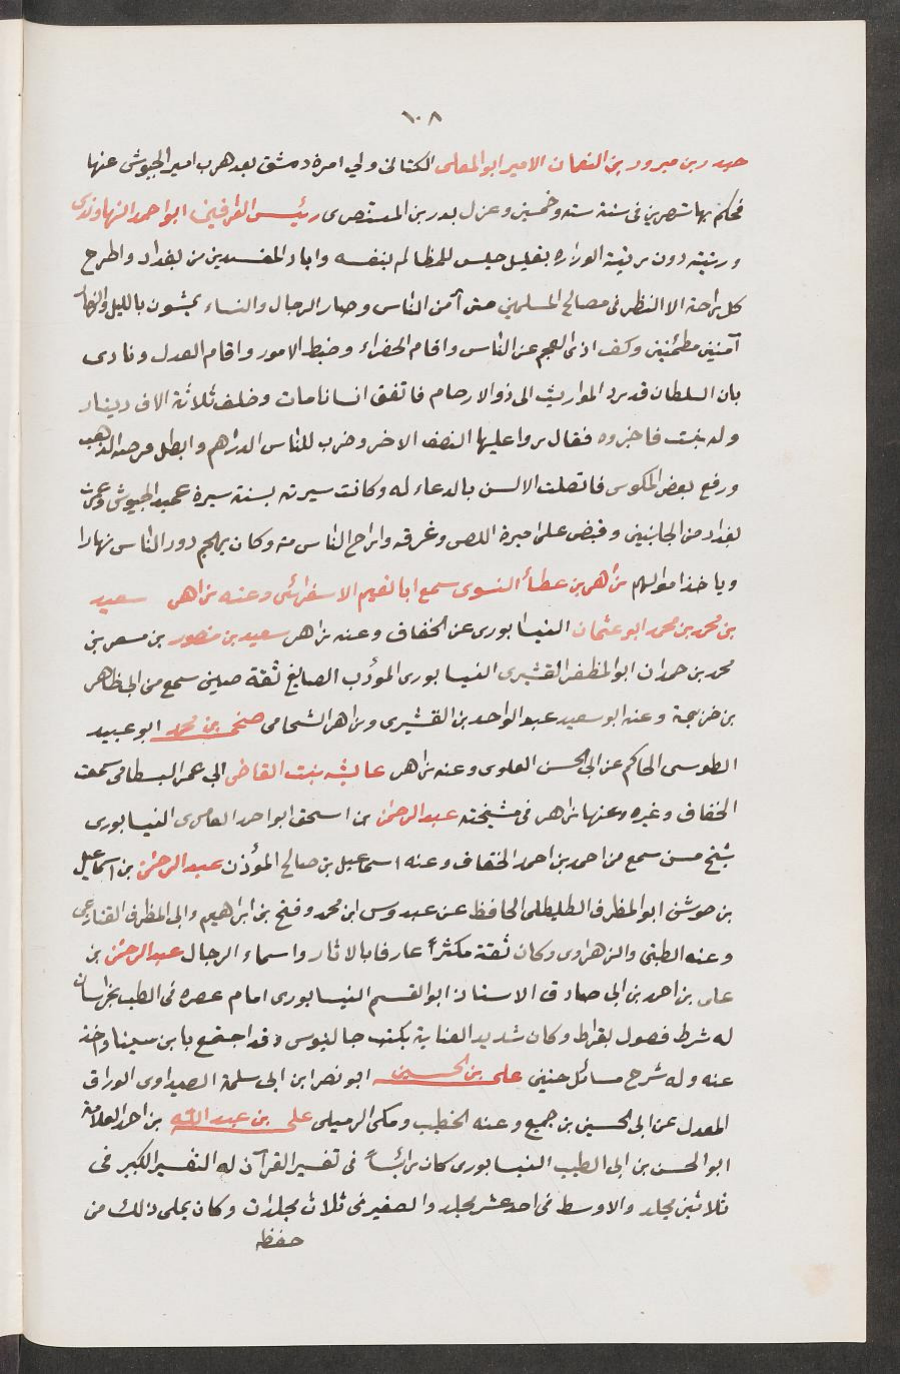 ١٠٨
حيدر بن ميرور بن النعمان الامير ابو المعلى الكتانى ولي امرة دمشق بعد هرب امير الجيوش عنها
فحكم بها شهرين فى سنة ستة وخمسين وعزل ببدر بن المستنصرى رئيس العراقين ابو احمد النهاوندى
ورتبته دون مرتبة الوزاره بقليل جلس للمظالم بنفسه واباد المفسدين من بغداد واطرح
كل راحة الا النظر فى مصالح المسلمين حتى آمن الناس وصار الرجال والنساء يمشون بالليل والنهار
آمنين مطمئنين وكف اذى العجم عن الناس واقام الخفراء وضبط الامور واقام العدل ونادى
بان السلطان قد يرد المواريث الى ذو الارحام فاتفق انسانا مات وخلف ثلاثة الاف دينار
وله بنت فاخبروه فقال يردوا عليها النصف الاخر وضرب للناس الدراهم وابطل قرصه الذهب
ورفع بعض المكوس فاتصلت الالسن بالدعاء له وكانت سيرته بسنة سيرة عميد الجيوش وعمرت
بغداد من الجانبين وقبض على اميرة اللص وغرقه واراح الناس منه وكان يهجم دور الناس نهارا
وياخذ اموالهم زاهر بن عطأ النسوى سمع ابا نعيم الاسفرائنى وعنه زاهر سعيد
بن محمد بن محمد ابو عثمان النيسابورى عن الخفاف وعنه زاهر سعيد بن منصور بن مسعر بن
محمد بن حمدان ابو المظفر القشيرى النيسابورى المؤدب الصايغ ثقة صين سمع من ابى طاهر
بن خزيمة وعنه ابو سعيد عبد الواحد بن القشيرى وزاهر الشحامى صخر بن محمد ابو عبيد
الطوسى الحاكم عن ابى الحسن العلوى وعنه زاهر عايشه بنت القاضى ابى عمر البسطامى سمعت
الخفاف وغيره وعنها زاهر فى مشيخته عبد الرحمن بن اسحق ابو احمد العامرى النيسابورى
شيخ مسن سمع من احمد بن احمد الخفاف وعنه اسماعيل بن صالح المؤذن عبد الرحمن بن اسماعيل
بن جوشن ابو المطرف الطليطلى الحافظ عن عبدوس ابن محمد وفتح بن ابراهيم وابى المطرف القنازعى
وعنه الطبنى والزهراوى وكان ثقة مكثراً عارفا بالاثار واسماء الرجال عبد الرحمن بن
على بن احمد بن ابى صادق الاستاذ ابو القسم النيسابورى امام عصره فى الطب بخراسان
له شرط فصول بقراط وكان شديد العناية بكتب جالينوس وقد اجتمع بابن سينا واخذ
عنه وله شرح مسائل حنين على بن الحسين ابو نصر ابن ابى سلمة الصيداوى الوراق
المعدل عن ابى الحسين بن جميع وعنه الخطيب ومكى الرميلى على بن عبد الله بن احمد العلامة
ابو الحسن بن ابى الطيب النيسابورى كان راساً فى تفسير القرآن له التفسير الكبير فى
ثلاثين مجلد والاوسط فى احد عشر مجلد والصغير فى ثلاث مجلدات وكان يملى ذلك من
حفظه